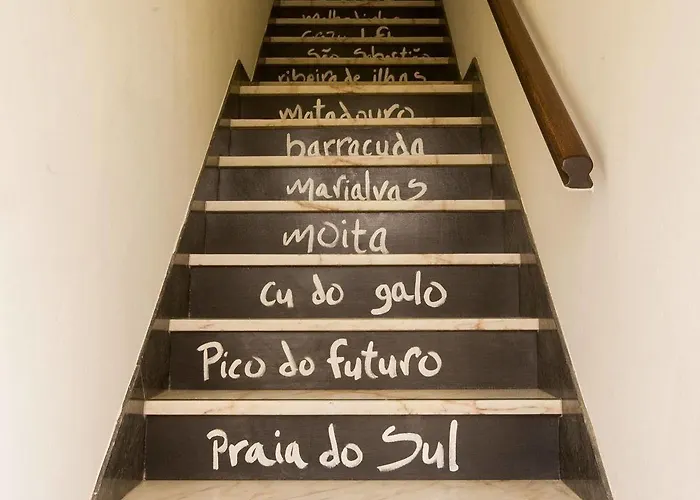 São Sebastião
ribeira de ilhas
matadouro
barracuda
marialvas
moita
cu do galo
Pico do futuro
Praia do Sul